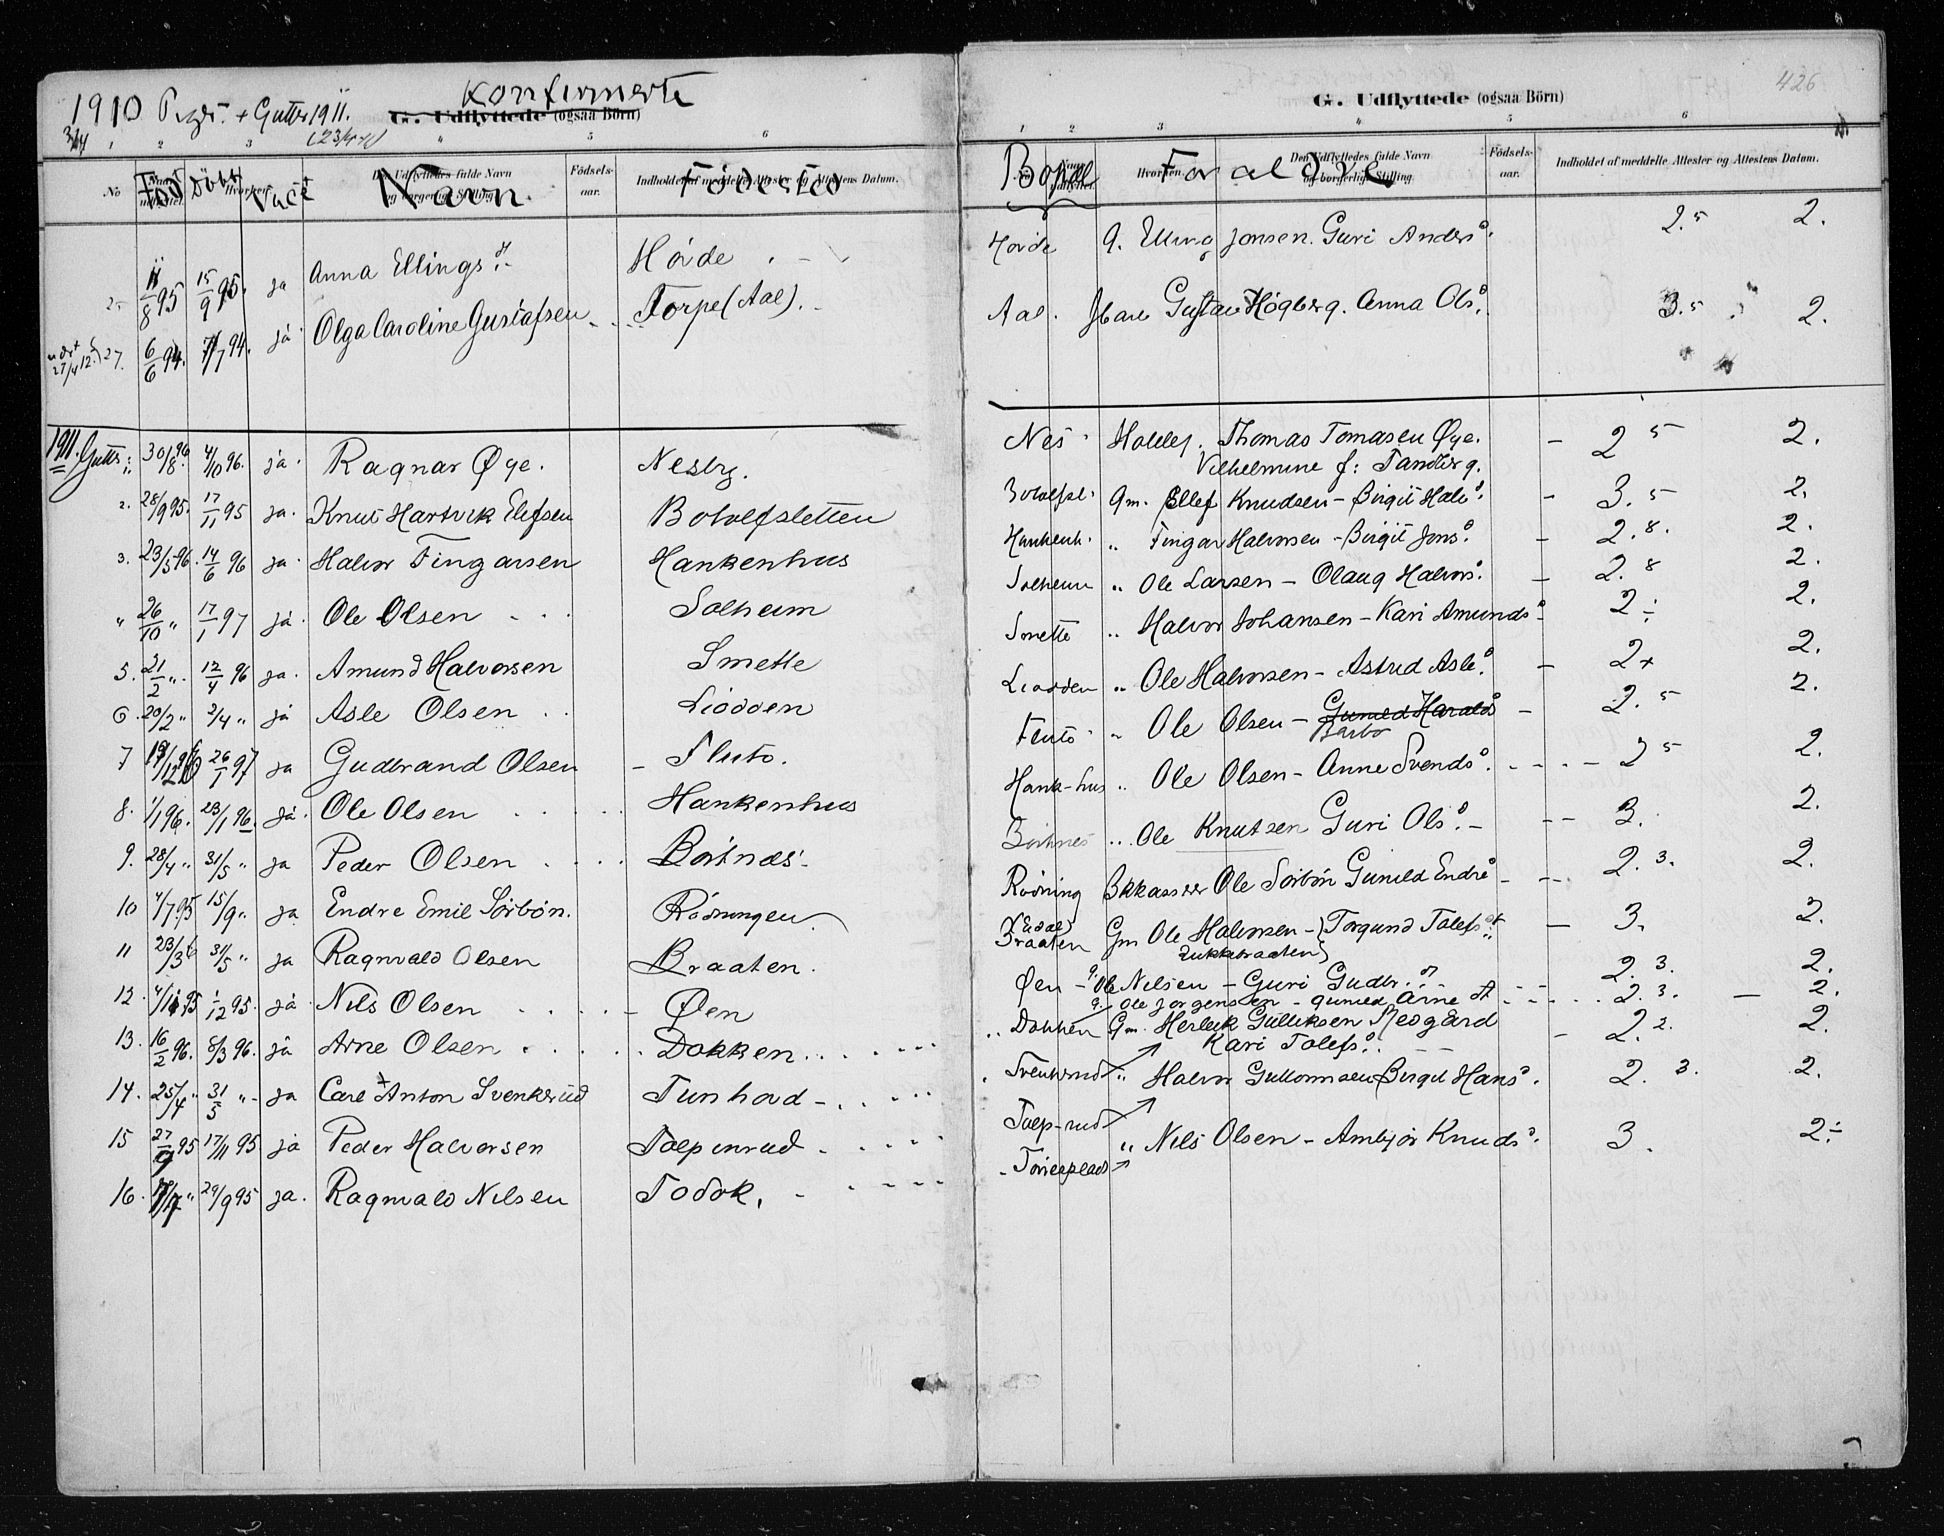 1910 Piger + Gutter 1911.
Konfirmerte
G. Udflyttede (ogsaa Börn)
1 2 3 4 5 6
No Født Døbt Vacc Navn Fødested
Den Udflyttedes fulde Navn og borgerlige Stilling. Fødsels-aar. Indholdet af meddelte Attester og Attestens Datum.
11/8 95 15/9 95. ja Anna Ellingsd. Hovde
27. 6/6 94. 7/7 94. ja Olga Caroline Gustafsen Torpe (Aal).
1911. Gutter:
30/8 96. 4/10 96. ja. Ragnar Øye. Nesby.
2. 28/9 95. 17/11 95 ja. Knut Hartvik Elefsen Botolfsletten
3. 23/5 96. 14/6 96 ja. Halvor Fingarsen Hankenhus
" 26/10 " 17/1 97 ja. Ole Olsen Solheim
5. 21/2 " 12/4 96 ja. Amund Halvorsen Smette
6. 20/2 " 2/4 " ja Asle Olsen Liodden
7 19/12 96 26/1 97 ja Gudbrand Olsen Fluto.
8. 1/1 96. 23/1 96. ja. Ole Olsen Hankenhus
9. 28/4 " 31/5 " ja Peder Olsen Børtnes
10 4/7 95 15/9 " ja Endre Emil Sørbøn. Rødningen
11 23/3 6 31/5 " ja Ragnvald Olsen Braaten.
12. 4/11 95 1/12 95. ja Nils Olsen Øen
13. 16/2 96. 8/3 96. ja Arne Olsen Dokken
14. 25/4 " 31/5 " ja Carl Anton Svenkerud Tunhovd
15 27/9 95 17/11 95 ja Peder Halvorsen Tolpinrud
16. 17/7 " 29/9 95 ja. Ragnvald Nilsen Todok.
426
G. Udflyttede (ogsaa Börn)
1 2 3 4 5 6
Bopæl Forældre
Den Udflyttedes fulde Navn og borgerlige Stilling. Fødsels-aar. Indholdet af meddelte Attester og Attestens Datum.
Hovde g. Elling Jonsen. Guri Andersd. 2.5 2.
Aal. Gustav Høgberg. Anna Olsd. 3.5 2.
Nes Thomas Tomasen Øye. 2 5 2.
Vilhelmine f: Tandberg.
Botolfsl. Gm. Ellef Knudsen - Birgit Halvd. 3.5 2.
Hankenh. " Fingar Halvorsen - Birgit Jonsd. 2.8. 2.
Solheim " Ole Larsen - Olaug Halvorsd. 2.8 2.
Smette " Halvor Johansen - Kari Amundsd. 2 ÷ 2.
Liodden " Ole Halvorsen - Astrid Asled. 2+ 2.
Fluto " Ole Olsen - Gunild Haralds 2.5 2.
Barbo
Hank-hus " Ole Olsen - Anne Svendsd. 2 5 2.
Børtnes " Ole Knutsen Guri Olsd. 3. 2.
Rødning Bkkasserer Ole Sørbøn Gunild Endred. 2.3. 2.
Braaten Gm Ole Halvorsen - Torgund Tolefsd. 3. 2.
Øen g. Ole Nilsen - Guri Gudbr.d. 2.3. 2.
g. Ole Jorgensen - Gunild Arne dt 2.3. - 2.
Dokken Gm. Herleik Gulliksen Neogård 2.2. 2.
Kari Tolefsd.
Svenkerud " Halvor Guttormsen Birgit Hansd. 2.3. 2.
Tolp-rud " Nils Olsen - Ambjør Knudsd. 3. 2÷